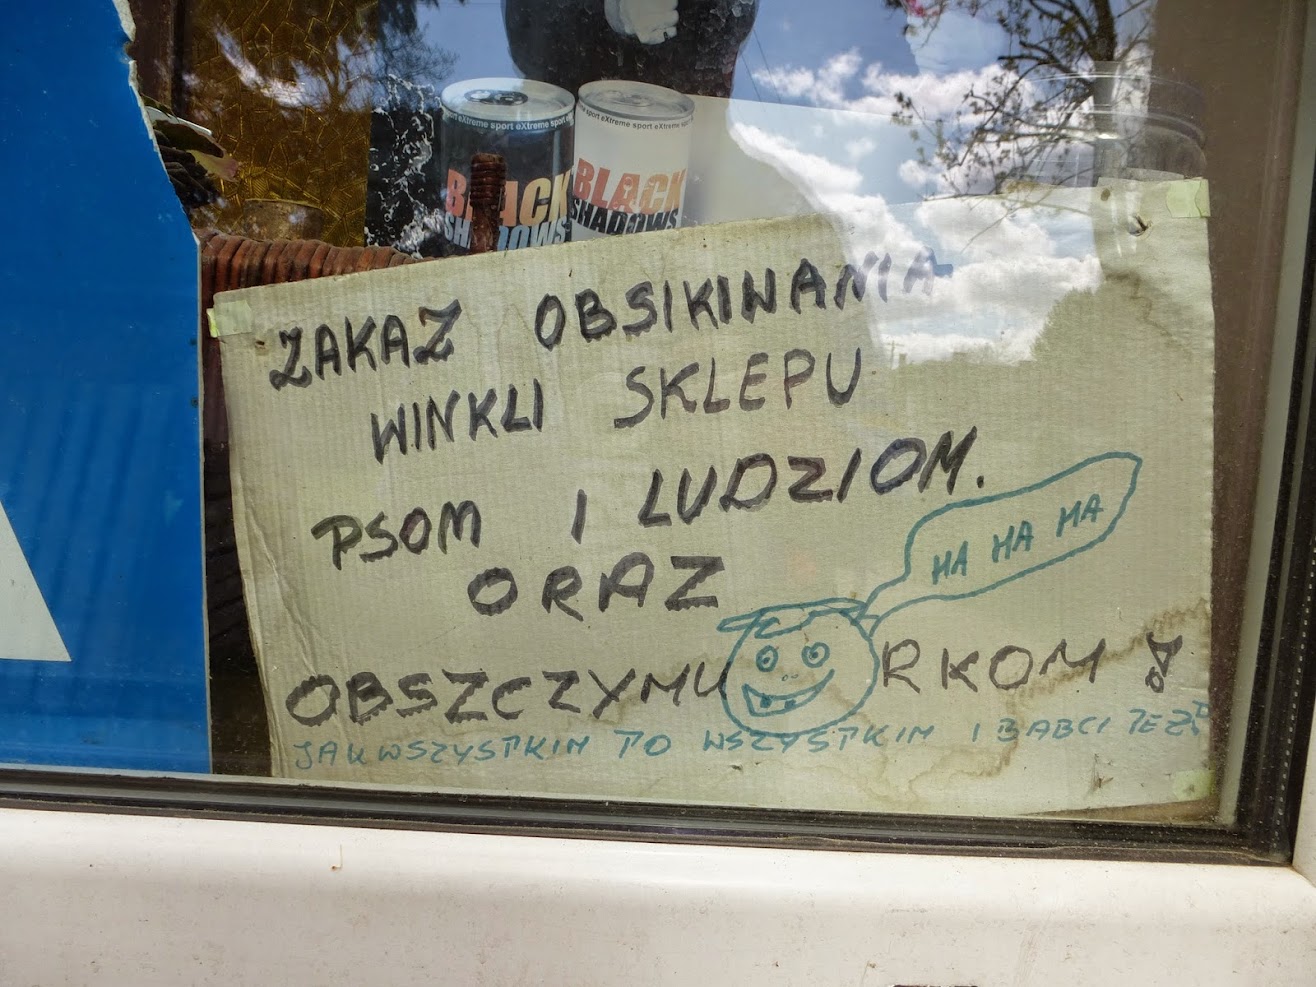 sport eXtreme sport eXtreme sport
BLACK
SHADOWS
sport eXtreme sport eX
BLACK
SHADOWS
ZAKAZ OBSIKIWANIA
WINKLI SKLEPU
PSOM I LUDZIOM.
ORAZ
OBSZCZYMURKOM!
HA HA HA
JAK WSZYSTKIM TO WSZYSTKIM I BABCI TEŻ